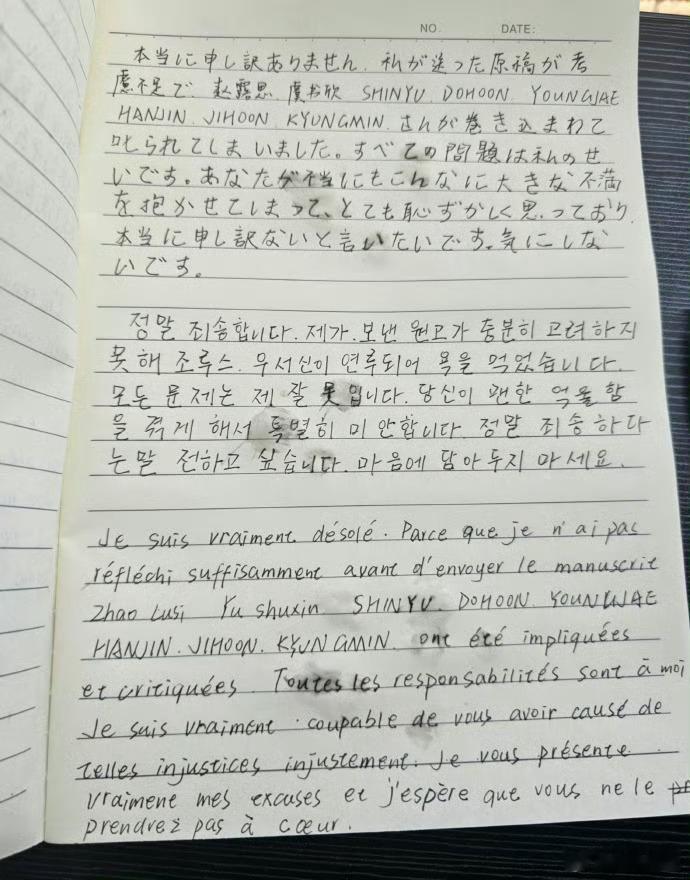 NO.
DATE:
本当に申し訳ありません. 私が送った原稿が考
慮不足で. 赵露思. 虞书欣 SHINYU. DOHOON. YOUNGJAE
HANJIN. JIHOON. KYUNGMIN. さんが巻き込まれて
叱られてしまいました。すべての問題は私のせ
いです。あなたが不当にもこんなに大きな不満
を抱かせてしまって、とても恥ずかしく思っており.
本当に申し訳ないと言いたいです。気にしな
いです。
정말 죄송합니다. 제가. 보낸 원고가 충분히 고려하지
못해 조루스. 우서신이 연루되어 욕을 먹었습니다.
모든 문제는 제 잘못입니다. 당신이 괜한 억울함
을 겪게 해서 특별히 미안합니다. 정말 죄송하다
는말 전하고 싶습니다. 마음에 담아두지 마세요.
Je suis vraiment désolé. Parce que je n'ai pas
réfléchi suffisamment avant d'envoyer le manuscrit
Zhao Lusi Yu shuxin SHINYU. DOHOON. YOUNGJAE
HANJIN. JIHOON. KYUNGMIN. ont été impliquées
et critiquées. Toutes les responsabilités sont à moi
Je suis vraiment coupable de vous avoir causé de
telles injustices injustement. Je vous présente
vraiment mes excuses et j'espère que vous ne le
prendrez pas à cœur.